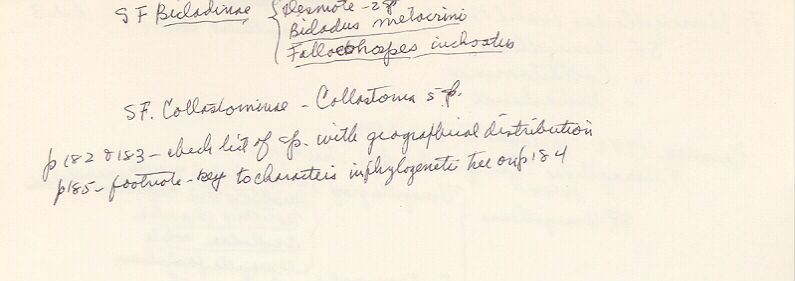 SF Bicladinae { Desmote - 2 sp
Bicladus metacrini
Fallacohospes inchoatus
SF. Collastominae - Collastoma 5 sp.
p 182 & 183 - check list of sp. with geographical distribution
p185 - footnote - key to characters in phylogenetic tree on p184